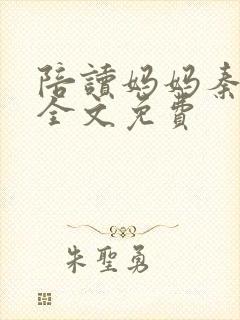 陪讀妈妈秦
全文免費
朱聖勇